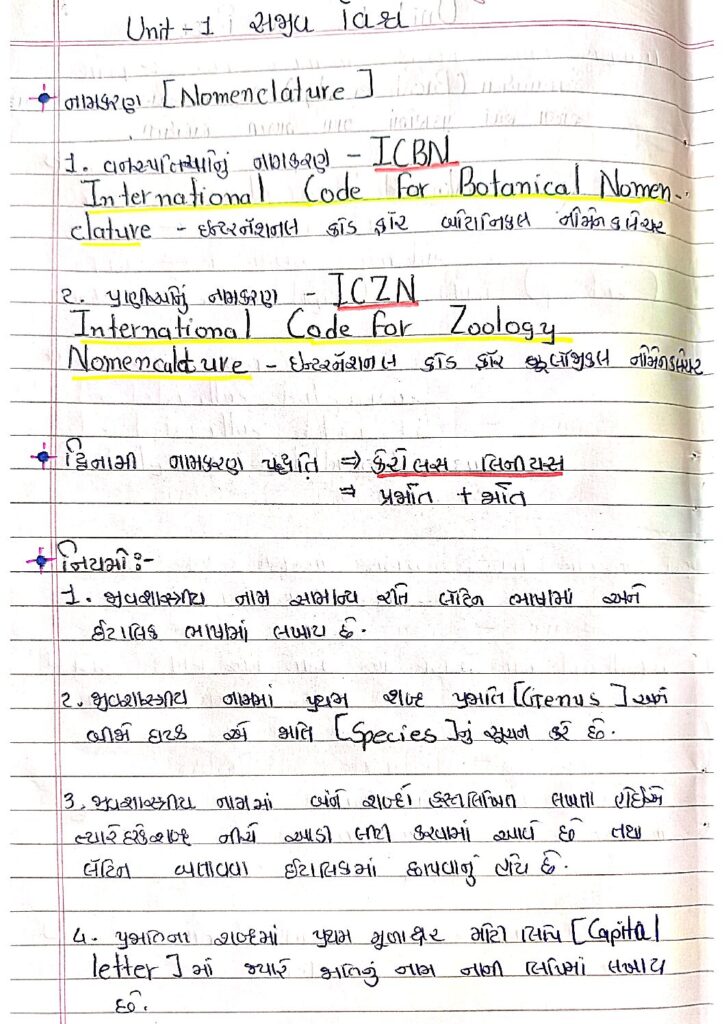 Unit - 1 સજીવ વિશ્વ
નામકરણ [Nomenclature]
1. વનસ્પતિઓનું નામકરણ - ICBN
International Code for Botanical Nomen-
clature - ઇન્ટરનૅશનલ કૉડ ફૉર બૉટાનિકલ નૉમેનક્લેચર
૨. પ્રાણીઓનું નામકરણ - ICZN
International Code for Zoology
Nomenculature - ઇન્ટરનૅશનલ કૉડ ફૉર ઝૂલૉજીકલ નૉમેનક્લેચર
દ્વિનામી નામકરણ પદ્ધતિ ⇒ કેરોલસ લિનીયસ
⇒ પ્રજાતિ + જાતિ
નિયમો :-
1. જીવશાસ્ત્રીય નામ સામાન્ય રીતે લૅટિન ભાષામાં અને
ઈટાલિક ભાષામાં લખાય છે.
૨. જીવશાસ્ત્રીય નામમાં પ્રથમ શબ્દ પ્રજાતિ [Genus] અને
બીજો ઘટક એ જાતિ [Species] નું સૂચન કરે છે.
3. જીવશાસ્ત્રીય નામમાં બંને શબ્દો હસ્તલિખિત લખતા હોઈએ
ત્યારે દરેક શબ્દ નીચે આડી લીટી કરવામાં આવે છે તથા
લૅટિન બતાવવા ઈટાલિકમાં છાપવાનું હોય છે.
૪. પ્રજાતિના શબ્દમાં પ્રથમ મૂળાક્ષર મોટી લિપિ [Capital
letter] માં જ્યારે જાતિનું નામ નાની લિપિમાં લખાય
છે.